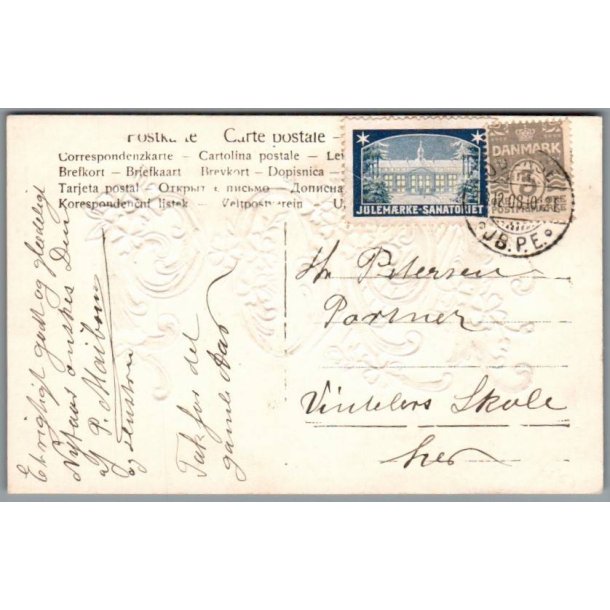 Postka te Carte postale –
Correspondenzkarte – Cartolina postale – Le
Brefkort – Briefkaart Brevkort – Dopisnica
Tarjeta postal – Открыт е письмо – Дописна
Korespondenční listek – Veltpostverein – U
JULEMÆRKE-SANATORIET
DANMARK
5
POSTFRIM.
JB.P.E.
Et rigtigt godt og glædeligt
Nytaar ønskes Dem
af P. Maibom
og Hustru
Tak for det
gamle Aar
Hr Petersen
Portner
Vintelers Skole
her